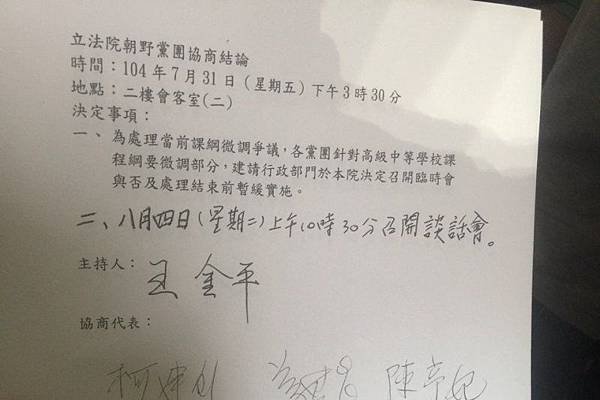 立法院朝野黨團協商結論
時間：104年7月31日（星期五）下午3時30分
地點：二樓會客室(二)
決定事項：
一、為處理當前課綱微調爭議，各黨團針對高級中等學校課
程綱要微調部分，建請行政部門於本院決定召開臨時會
與否及處理結束前暫緩實施。
二、八月四日(星期二)上午10時30分召開談話會。
主持人：王金平
協商代表：
柯建 陳亭妃